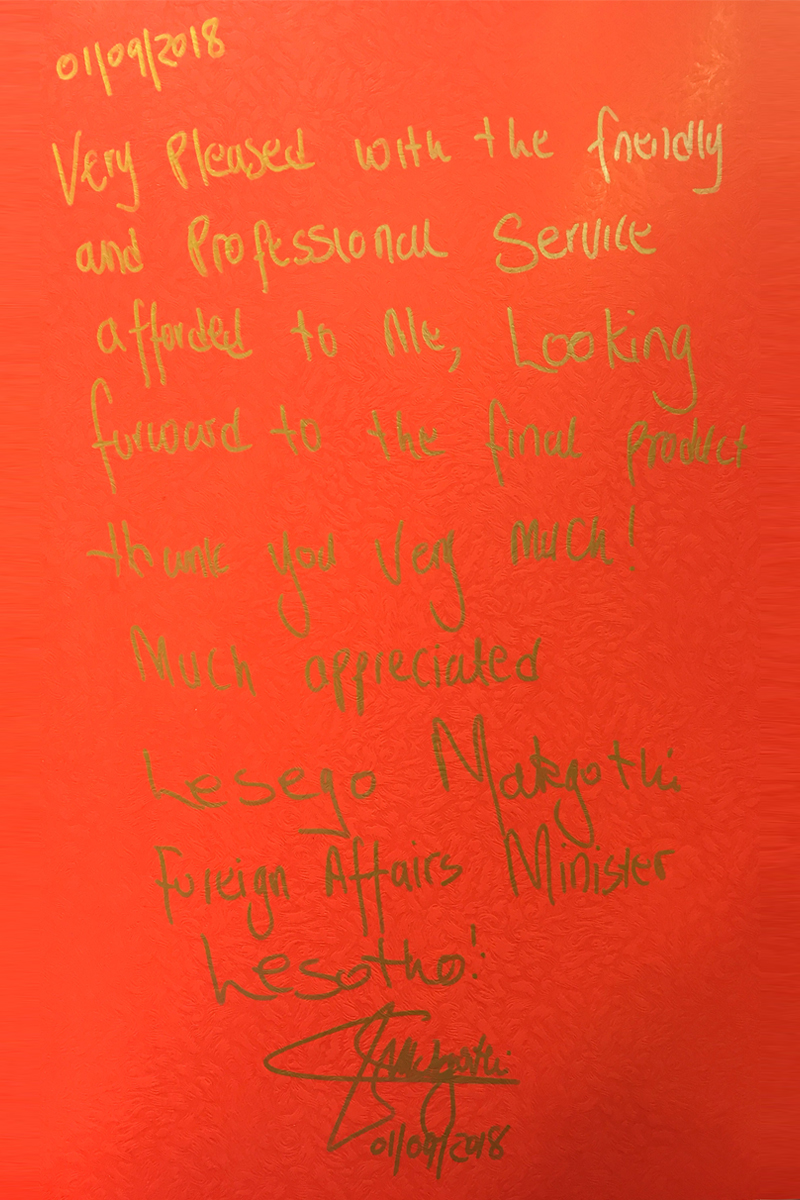 01/09/2018
Very Pleased with the freindly
and Professional Service
afforded to Me, Looking
forward to the final product
thank you Very Much!
Much appreciated
Lesego Makgothi
Foreign Affairs Minister
Lesotho!
Makgothi
01/09/2018